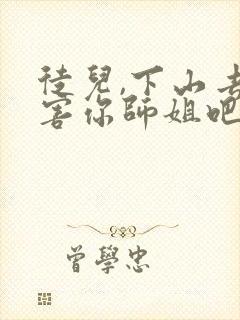 徒兒,下山去
害你師姐吧
曾學忠